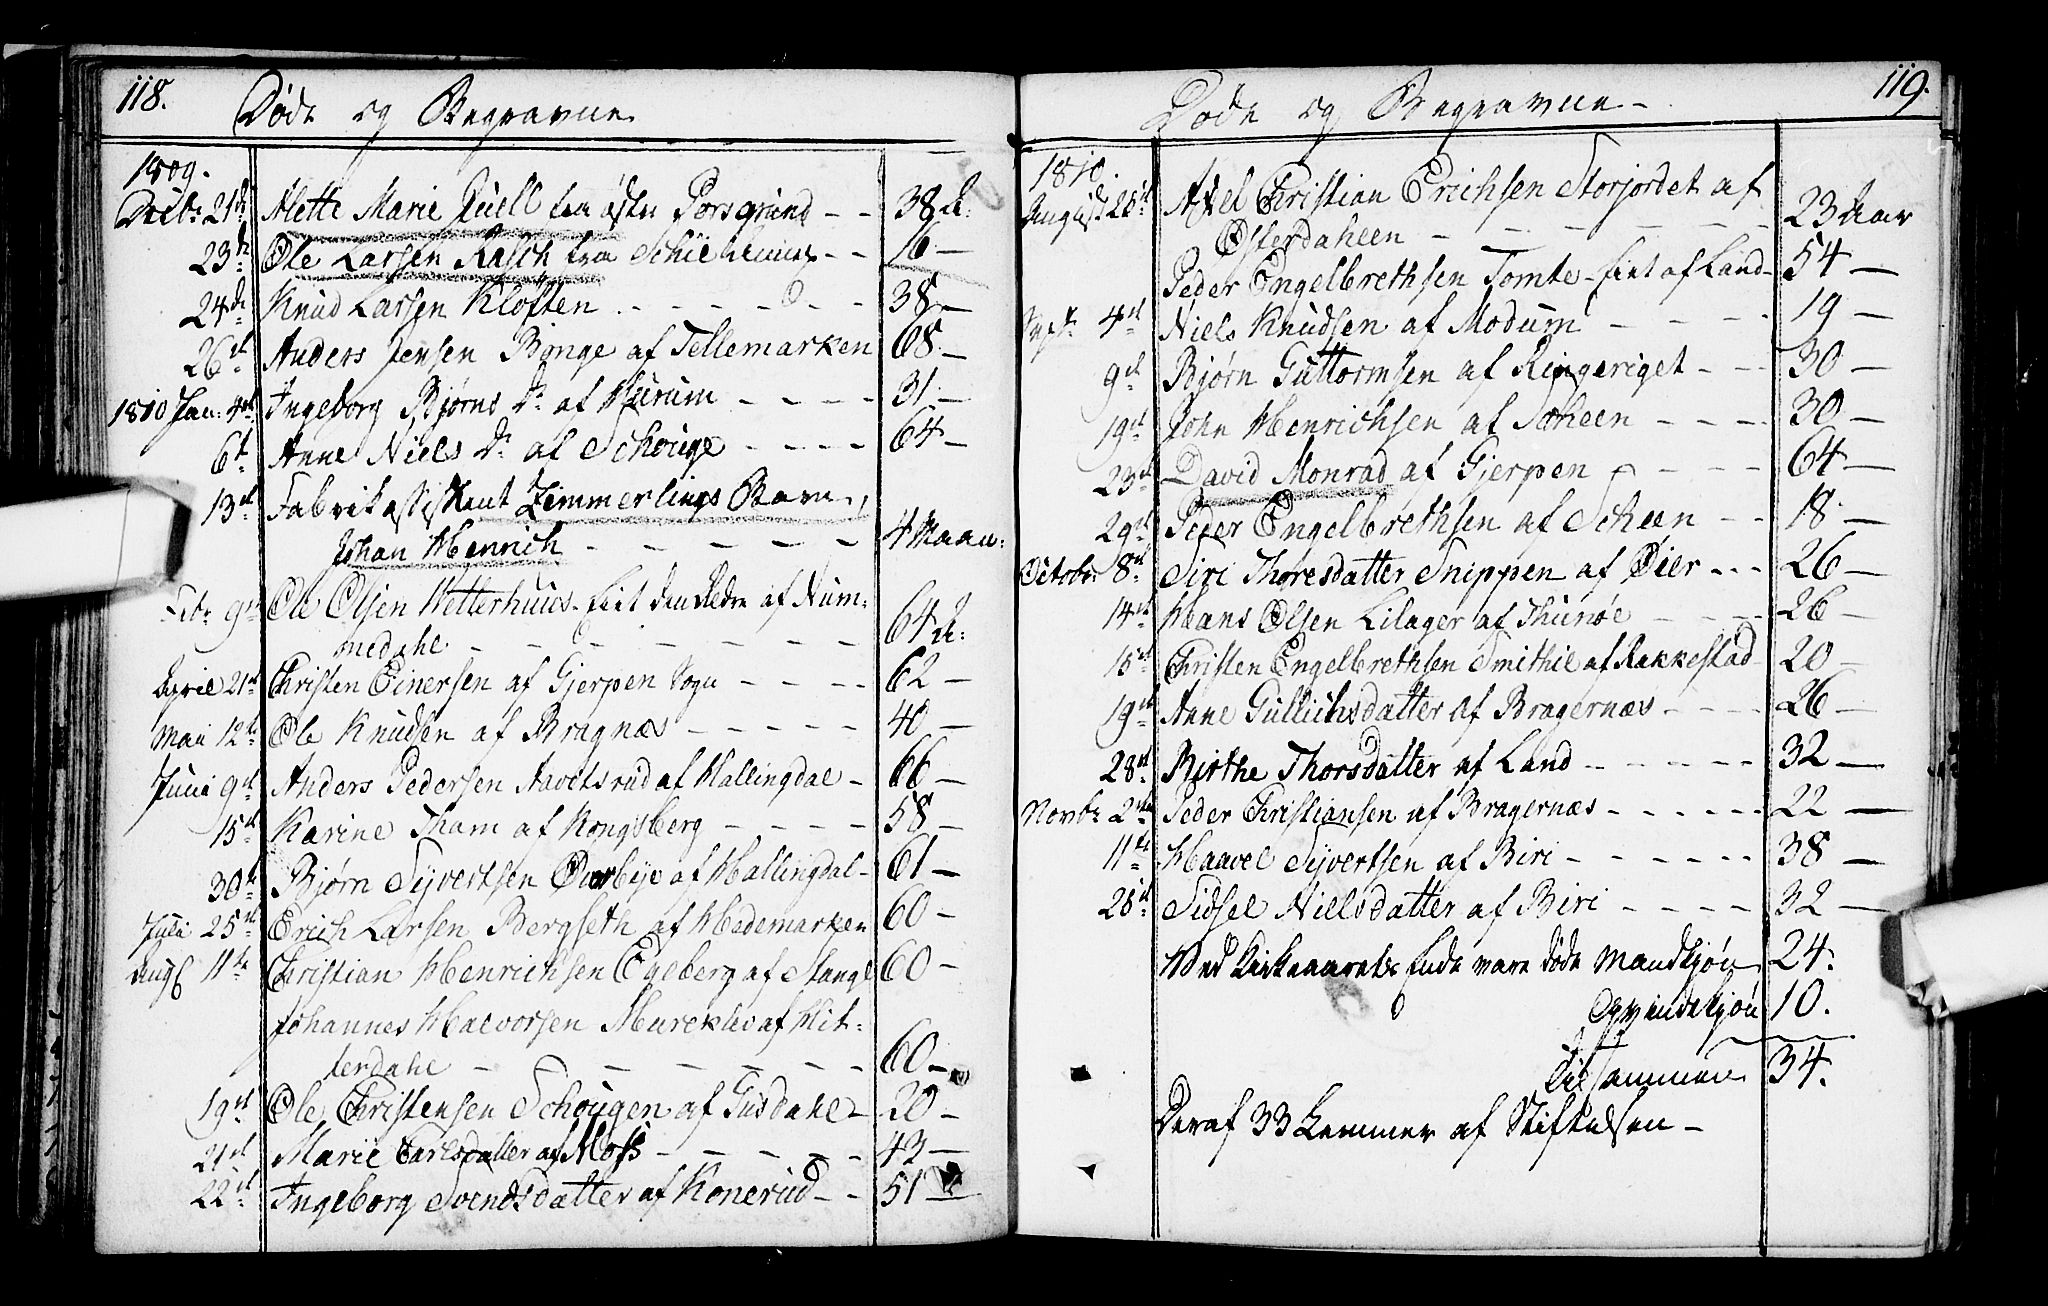 118.
Døde og Begravne
1809.
Decbr 21de Alette Marie Juell fra østre Porsgrund - - 38 A:
23de Ole Larsen Rasch fra - - 16 -
24de Knud Larsen Kløften - - - - - - 38 -
26de Anders Jensen Bønge af Tellemarken 68 -
1810 Jan: 4de Ingeborg Bjørns Dr af Hurum - - - - 31 -
6te Anne Niels Dr af Schouge - - - - 64 -
13de Fabrikassistent Zimmerlings Barn,
Johan Henrich - - - - - 4 Maan:
Febr 9de Ole Olsen Wetterhuus født den Ældre af Num=
medahl - - - - - - 64 A:
April 21de Christen Einersen af Gjerpen Sogn - - - - 62 -
Mai 12te Ole Knudsen af Bragnæs - - - - - 40 -
Juni 9de Anders Pedersen af Hallingdal - 66 -
15de Karine Tham af Kongsberg - - - - 58 -
30te Bjørn Syvertsen Overbye af Hallingdal - 61 -
Juli 25de Erich Larsen Bergseth af Hedemarken 60 -
Aug 11te Christian Henrichsen Egeberg af Stange 60 -
Johannes Halvorsen af Hit=
terdahl - - - - - - 60 -
19de Ole Christensen Schougen af Gusdahl - 20 -
21de Marie Carlsdatter af Moss - - - - - 43 -
22de Ingeborg Svendsdatter af Konerud - - 51 -
119.
Døde og Begravne -
1810
August 26de Axel Christian Erichsen Storjordet af
Østerdahlen - - - - - - 23 Aar
Peder Engelbrethsen Tomte - født af Land - 54 -
Sept. 4de Niels Knudsen af Modum - - - - 19 -
9de Bjørn Guttormsen af Ringeriget - - - 30 -
19de John Henrichsen af Scheen - - - - 30 -
23de David Monrad af Gjerpen - - - - 64 -
29de Peder Engelbrethsen af Scheen - - 18 -
Octobr 8de Siri Thoresdatter Snippen af Øier - - - 26 -
14de Hans Olsen Lilager af Thunøe - - - - 26 -
15de Christen Engelbrethsen Smithil af Rakkestad - 20 -
19de Anne Gullichsdatter af Bragernæs - - - - 26 -
28de Birthe Thorsdatter af Land - - - - - 32 -
Novbr 2den Peder Christiansen af Bragernæs - - - - - 22 -
11te Haavel Syvertsen af Biri - - - - - - 38 -
26de Sidsel Nielsdatter af Biri - - - - 32 -
Ved Kirkeaarets Ende vare døde Mandkjøn 24.
Og Qvindekjøn 10.
Tilsammen 34.
Deraf 33 Lemmer af Stiftelsen -